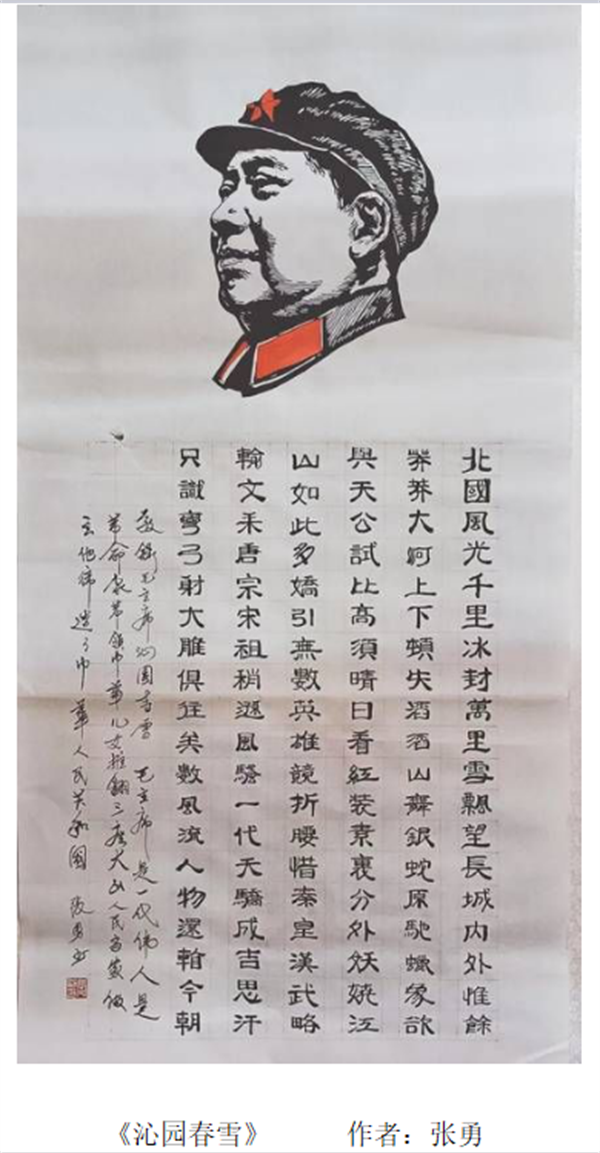 北國風光千里冰封萬里雪飄望長城內外惟餘
莽莽大河上下頓失滔滔山舞銀蛇原馳蠟象欲
與天公試比高須晴日看紅裝素裹分外妖嬈江
山如此多嬌引無數英雄競折腰惜秦皇漢武略
輸文采唐宗宋祖稍遜風騷一代天驕成吉思汗
只識彎弓射大雕俱往矣數風流人物還看今朝
敬錄毛主席沁園春雪 毛主席是一代偉人是
革命家带领中華儿女推翻三座大山人民当家做
主他締造了中華人民共和國 張勇書
《沁园春雪》 作者：张勇